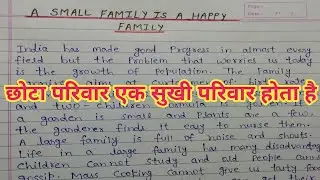 A SMALL FAMILY IS A HAPPY
FAMILY
India has made good Progress in almost every
field but the Problem that worries us today
is the growth of population. The Family
छोटा परिवार एक सुखी परिवार होता है
and two- Children
a garden is small and Plants are a few.
the gardener finds it easy to nurse them.
A large family is full of noise and shouts.
Life in a large family has many disadvantages
Children Cannot study and old people Cannot
gossip. Mass Cooking Cannot give us